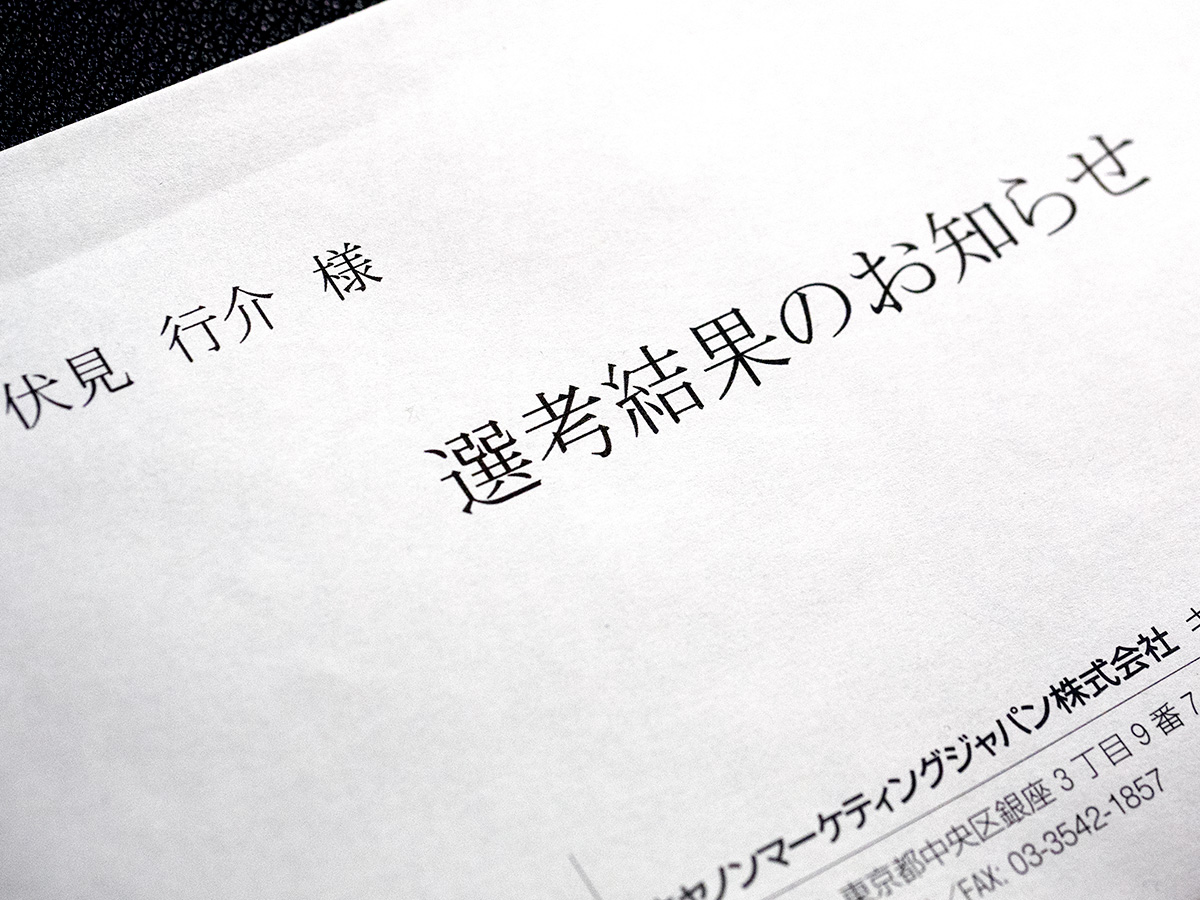 伏見 行介 様
選考結果のお知らせ
キヤノンマーケティングジャパン株式会社
東京都中央区銀座3丁目9番7
/FAX: 03-3542-1857